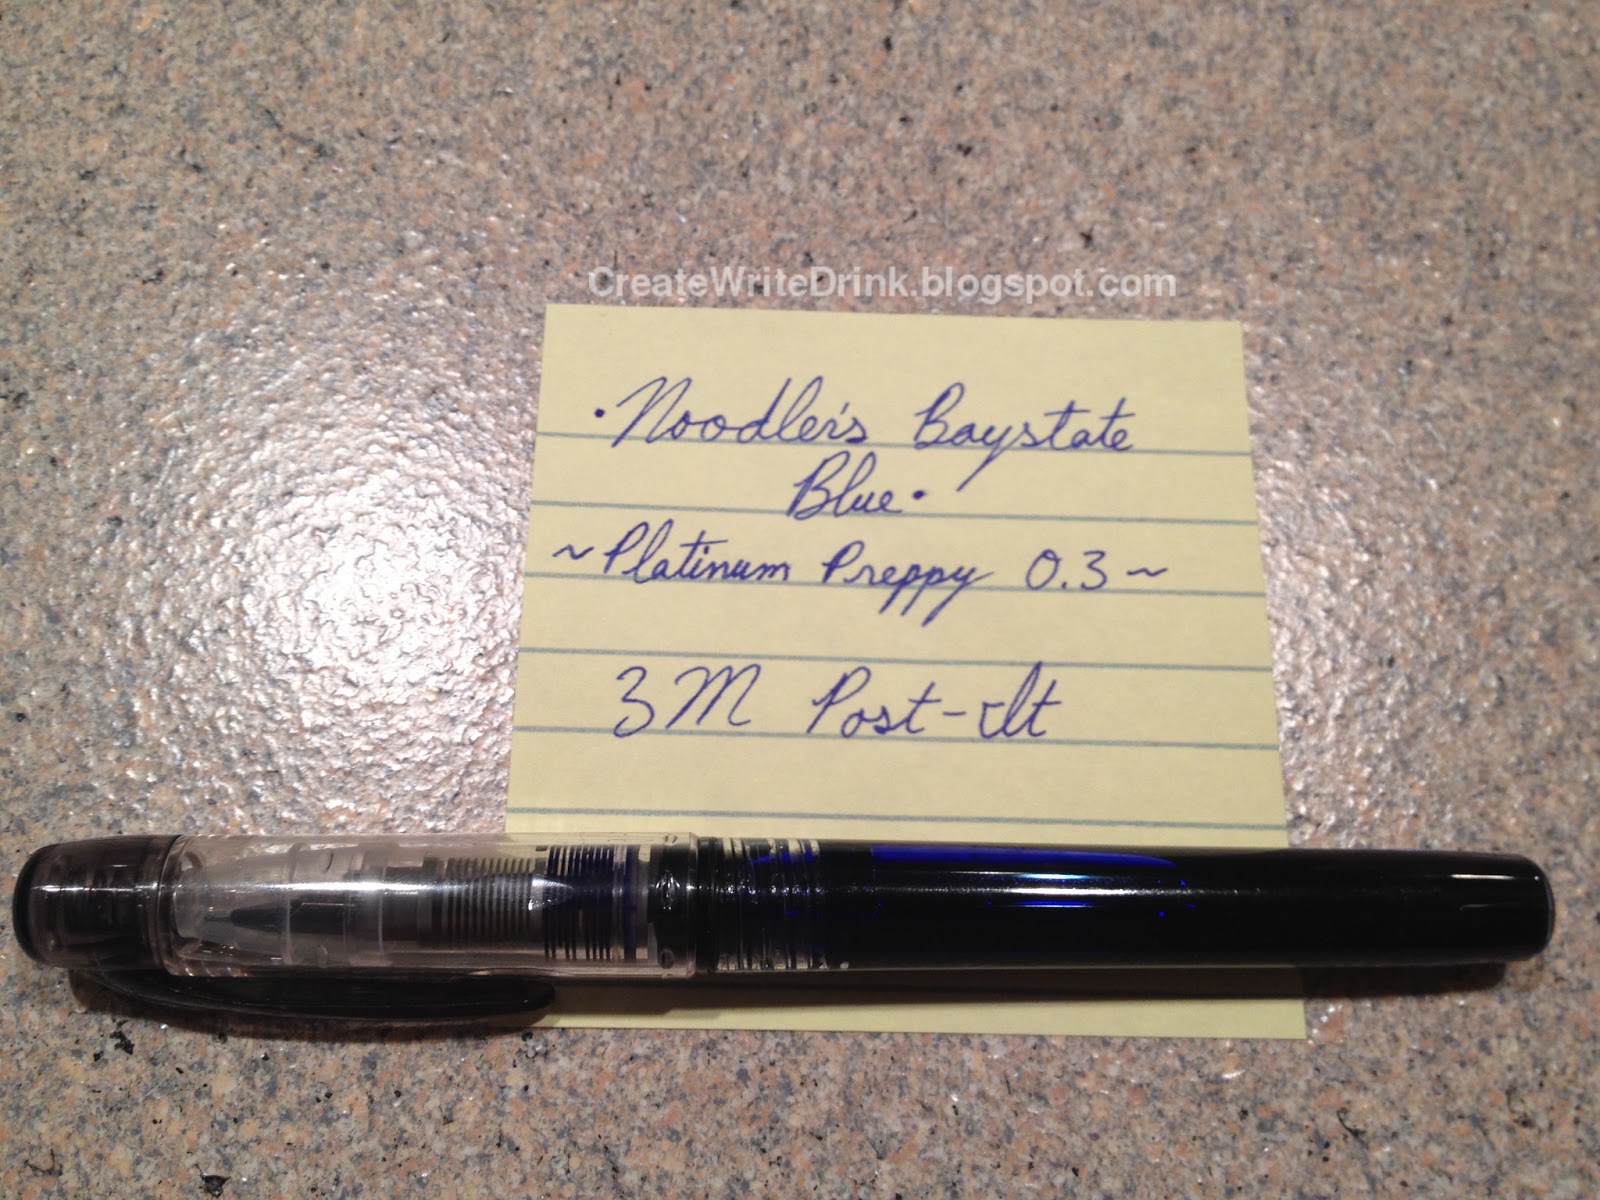 CreateWriteDrink.blogspot.com
•Noodler's Baystate
Blue•
~Platinum Preppy 0.3~
3M Post-It